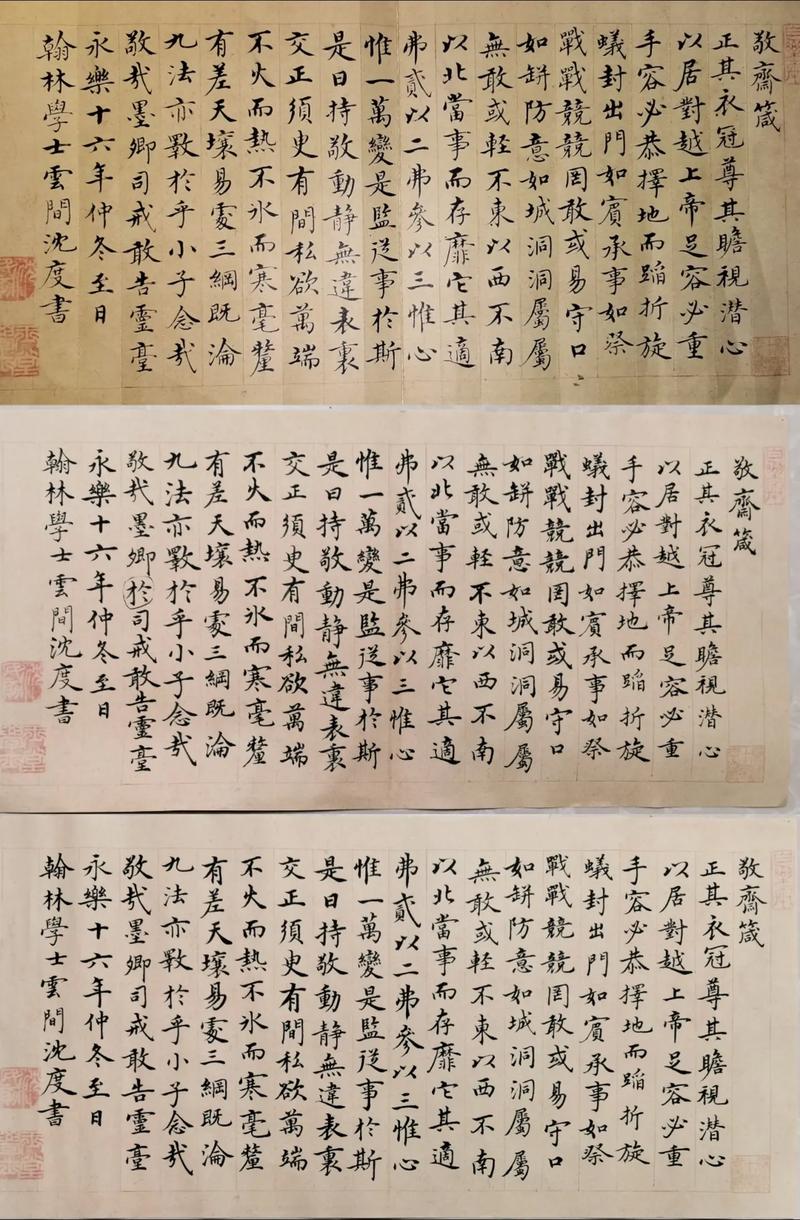 敬齋箴
正其衣冠尊其瞻視潜心
以居對越上帝足容必重
手容必恭擇地而蹈折旋
蟻封出門如賓承事如祭
戰戰競競罔敢或易守口
如缾防意如城洞洞屬屬
無敢或輕不東以西不南
以北當事而存靡它其適
弗貳以二弗參以三惟心
惟一萬變是監従事於斯
是曰持敬動静無違表裏
交正須臾有間私欲萬端
不火而熱不氷而寒毫釐
有差天壤易處三綱既淪
九法亦斁於乎小子念哉
敬哉墨卿司戒敢告靈臺
永樂十六年仲冬至日
翰林學士雲間沈度書
敬齋箴
正其衣冠尊其瞻視潜心
以居對越上帝足容必重
手容必恭擇地而蹈折旋
蟻封出門如賓承事如祭
戰戰競競罔敢或易守口
如缾防意如城洞洞屬屬
無敢或輕不東以西不南
以北當事而存靡它其適
弗貳以二弗參以三惟心
惟一萬變是監従事於斯
是曰持敬動静無違表裏
交正須臾有間私欲萬端
不火而熱不氷而寒毫釐
有差天壤易處三綱既淪
九法亦斁於乎小子念哉
敬哉墨卿於司戒敢告靈臺
永樂十六年仲冬至日
翰林學士雲間沈度書
敬齋箴
正其衣冠尊其瞻視潜心
以居對越上帝足容必重
手容必恭擇地而蹈折旋
蟻封出門如賓承事如祭
戰戰競競罔敢或易守口
如缾防意如城洞洞屬屬
無敢或輕不東以西不南
以北當事而存靡它其適
弗貳以二弗參以三惟心
惟一萬變是監従事於斯
是曰持敬動静無違表裏
交正須臾有間私欲萬端
不火而熱不氷而寒毫釐
有差天壤易處三綱既淪
九法亦斁於乎小子念哉
敬哉墨卿司戒敢告靈臺
永樂十六年仲冬至日
翰林學士雲間沈度書